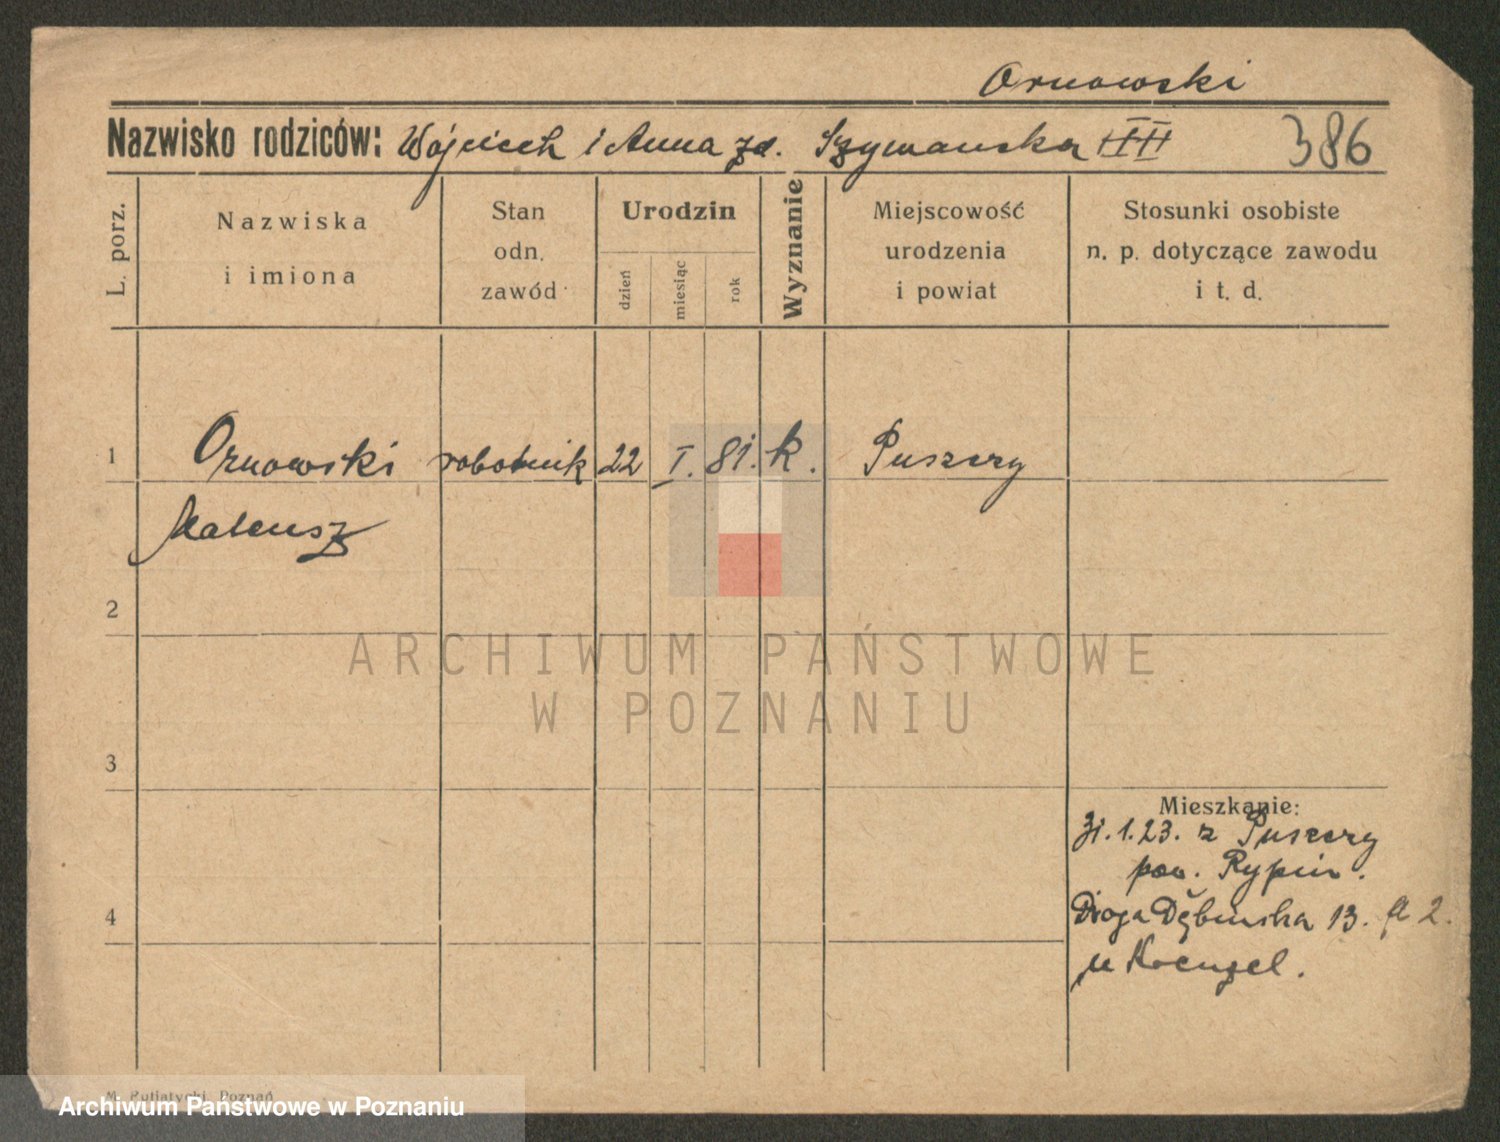 Ornowski
Nazwisko rodziców: Wojciech i Anna zd. Szymanska III
386
L. porz.
Nazwiska
i imiona
Stan
odn.
zawód
Urodzin
dzień
miesiąc
rok
Wyznanie
Miejscowość
urodzenia
i powiat
Stosunki osobiste
n. p. dotyczące zawodu
i t. d.
1 Ornowski robotnik 22 I. 81. k. Puszczy
Mateusz
2
ARCHIWUM PAŃSTWOWE
W POZNANIU
3
Mieszkanie:
31.1.23. z Puszczy
pow. Rypin.
4
Droga Dębinska 13. 2.
u
M. Putiatycki, Poznań
Archiwum Państwowe w Poznaniu